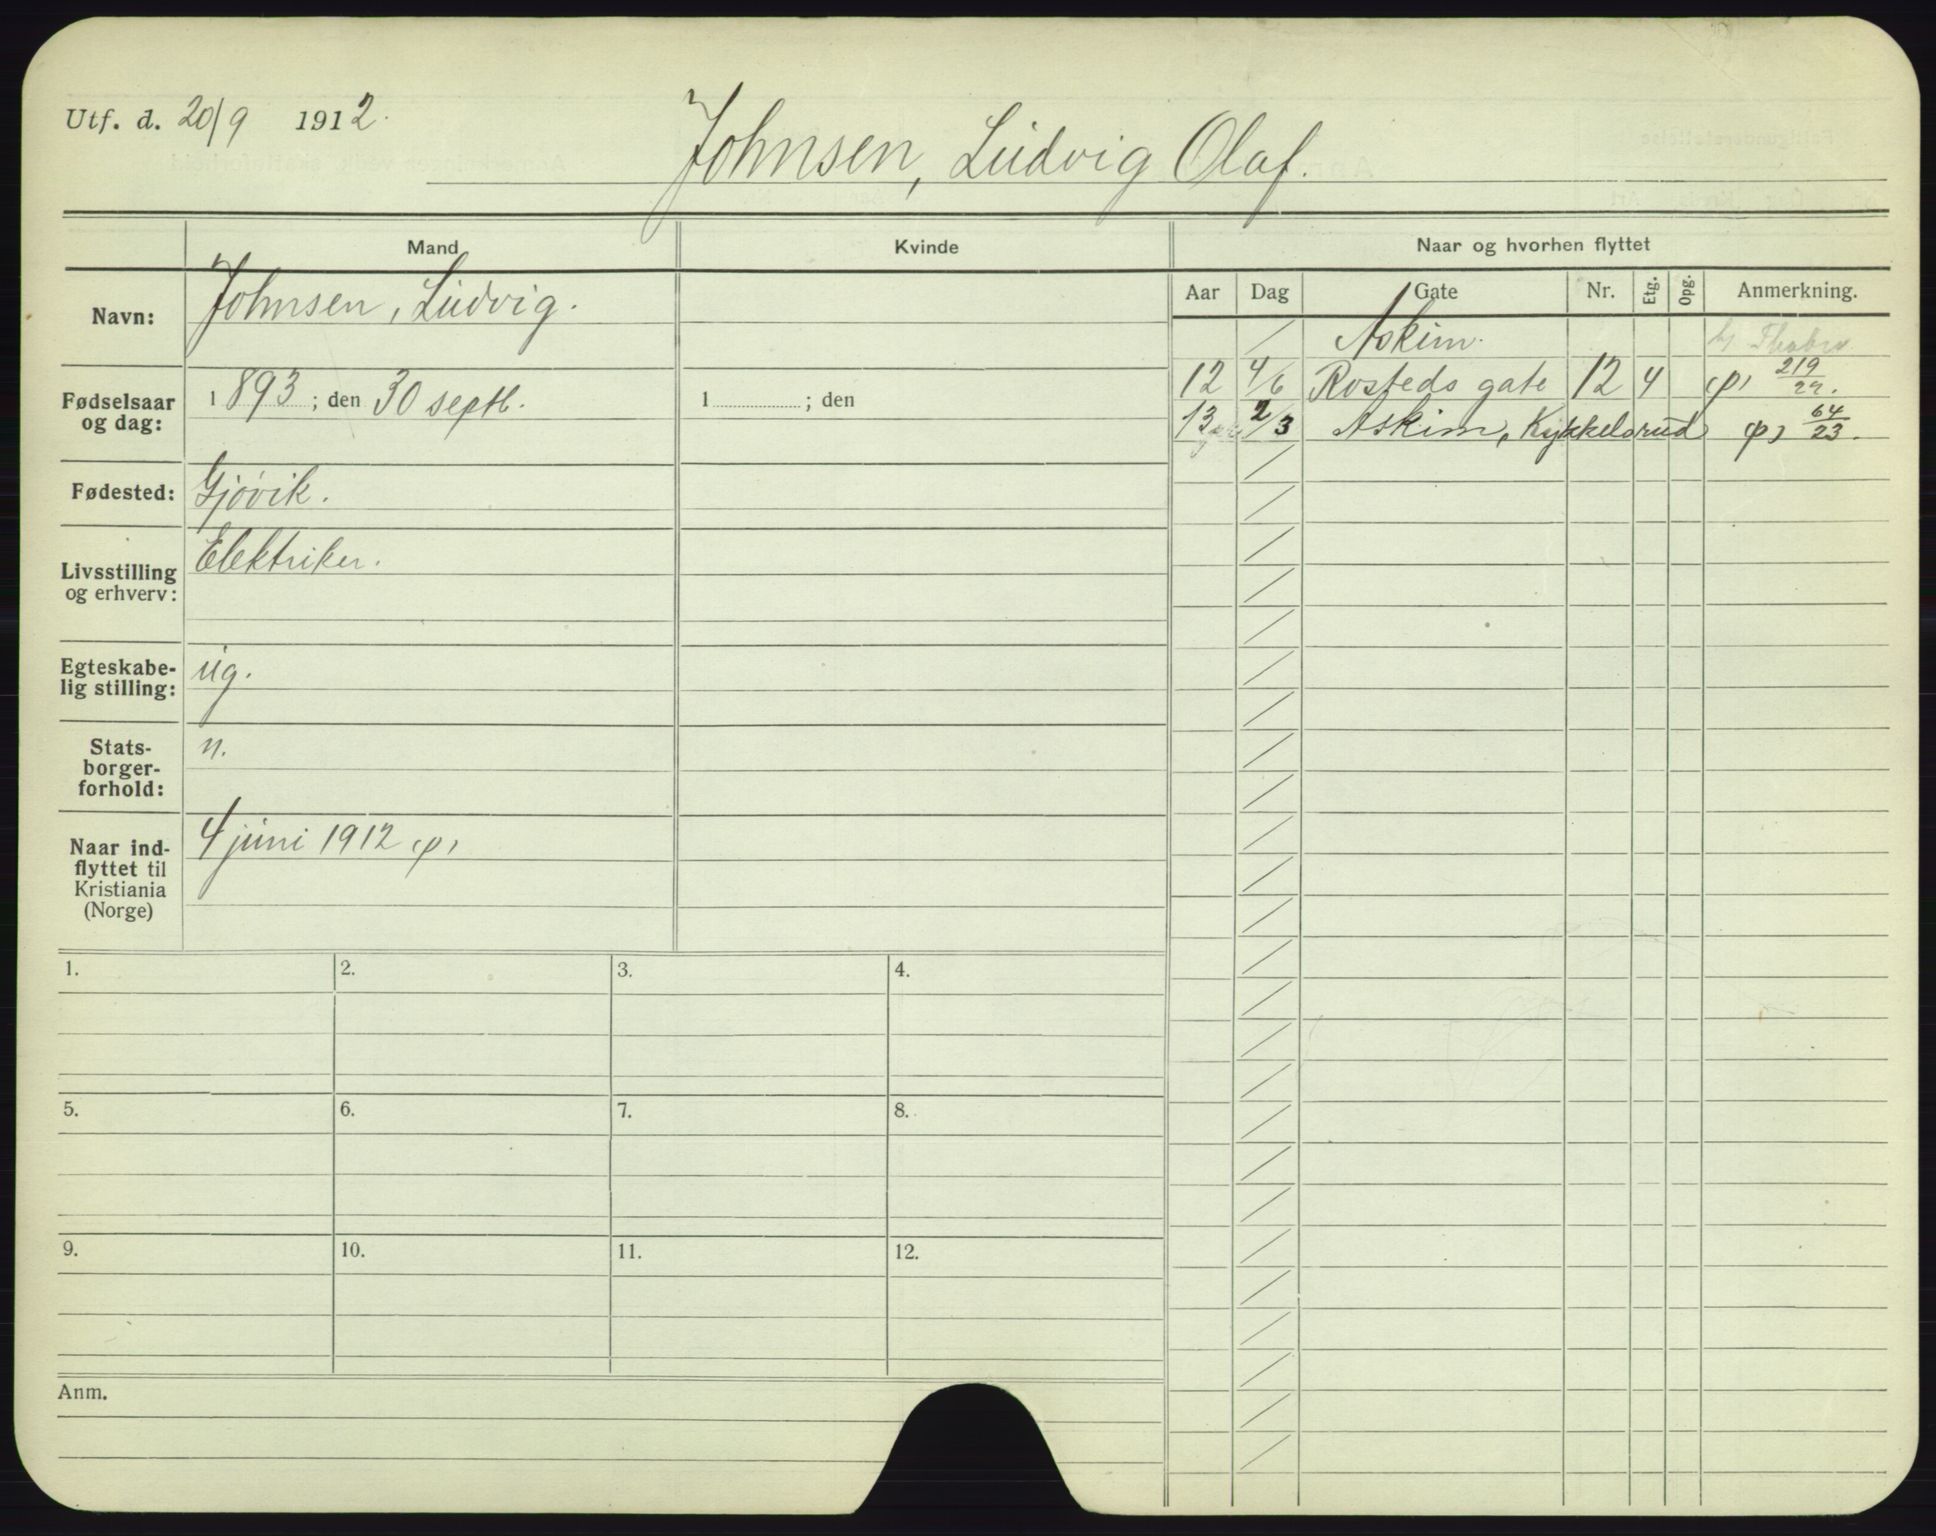 Utf. d. 20/9 1912.
Johnsen, Ludvig Olaf.
Mand Kvinde Naar og hvorhen flyttet
Navn: Johnsen, Ludvig.
Fødselsaar og dag: 1893; den 30 septb. 1 ; den
Fødested: Gjövik.
Livsstilling og erhverv: Elektriker.
Egteskabe-
lig stilling: ug.
Stats-
borger-
forhold: n.
Naar ind-
flyttet til
Kristiania
(Norge) 4 juni 1912 (p)
Aar Dag Gate Nr. Etg. Opg. Anmerkning.
/ Askim.
12 4/6 Rosteds gate 12 4 (p) 219/
13 2/3 Askim, Kykkelsrud (p) 64/23.
1. 2. 3. 4.
5. 6. 7. 8.
9. 10. 11. 12.
Anm.